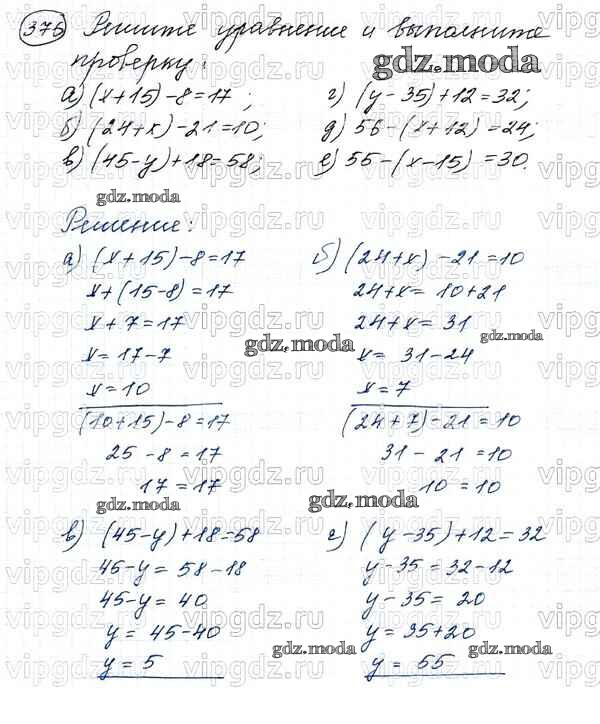 375 Решите уравнение и выполните
проверку:
gdz.moda
а) (x+15)-8=17;
г) (y-35)+12=32;
б) (24+x)-21=10;
д) 56-(x+12)=24;
в) (45-y)+18=58;
е) 55-(x-15)=30.
gdz.moda
Решение:
а) (x+15)-8=17
x+(15-8)=17
x+7=17
x=17-7
x=10
(10+15)-8=17
25-8=17
17=17
б) (24+x)-21=10
24+x=10+21
24+x=31
x=31-24
x=7
(24+7)-21=10
31-21=10
10=10
gdz.moda
gdz.moda
gdz.moda
gdz.moda
в) (45-y)+18=58
45-y=58-18
45-y=40
y=45-40
y=5
г) (y-35)+12=32
y-35=32-12
y-35=20
y=35+20
y=55
gdz.moda
gdz.moda
vipgdz.ru